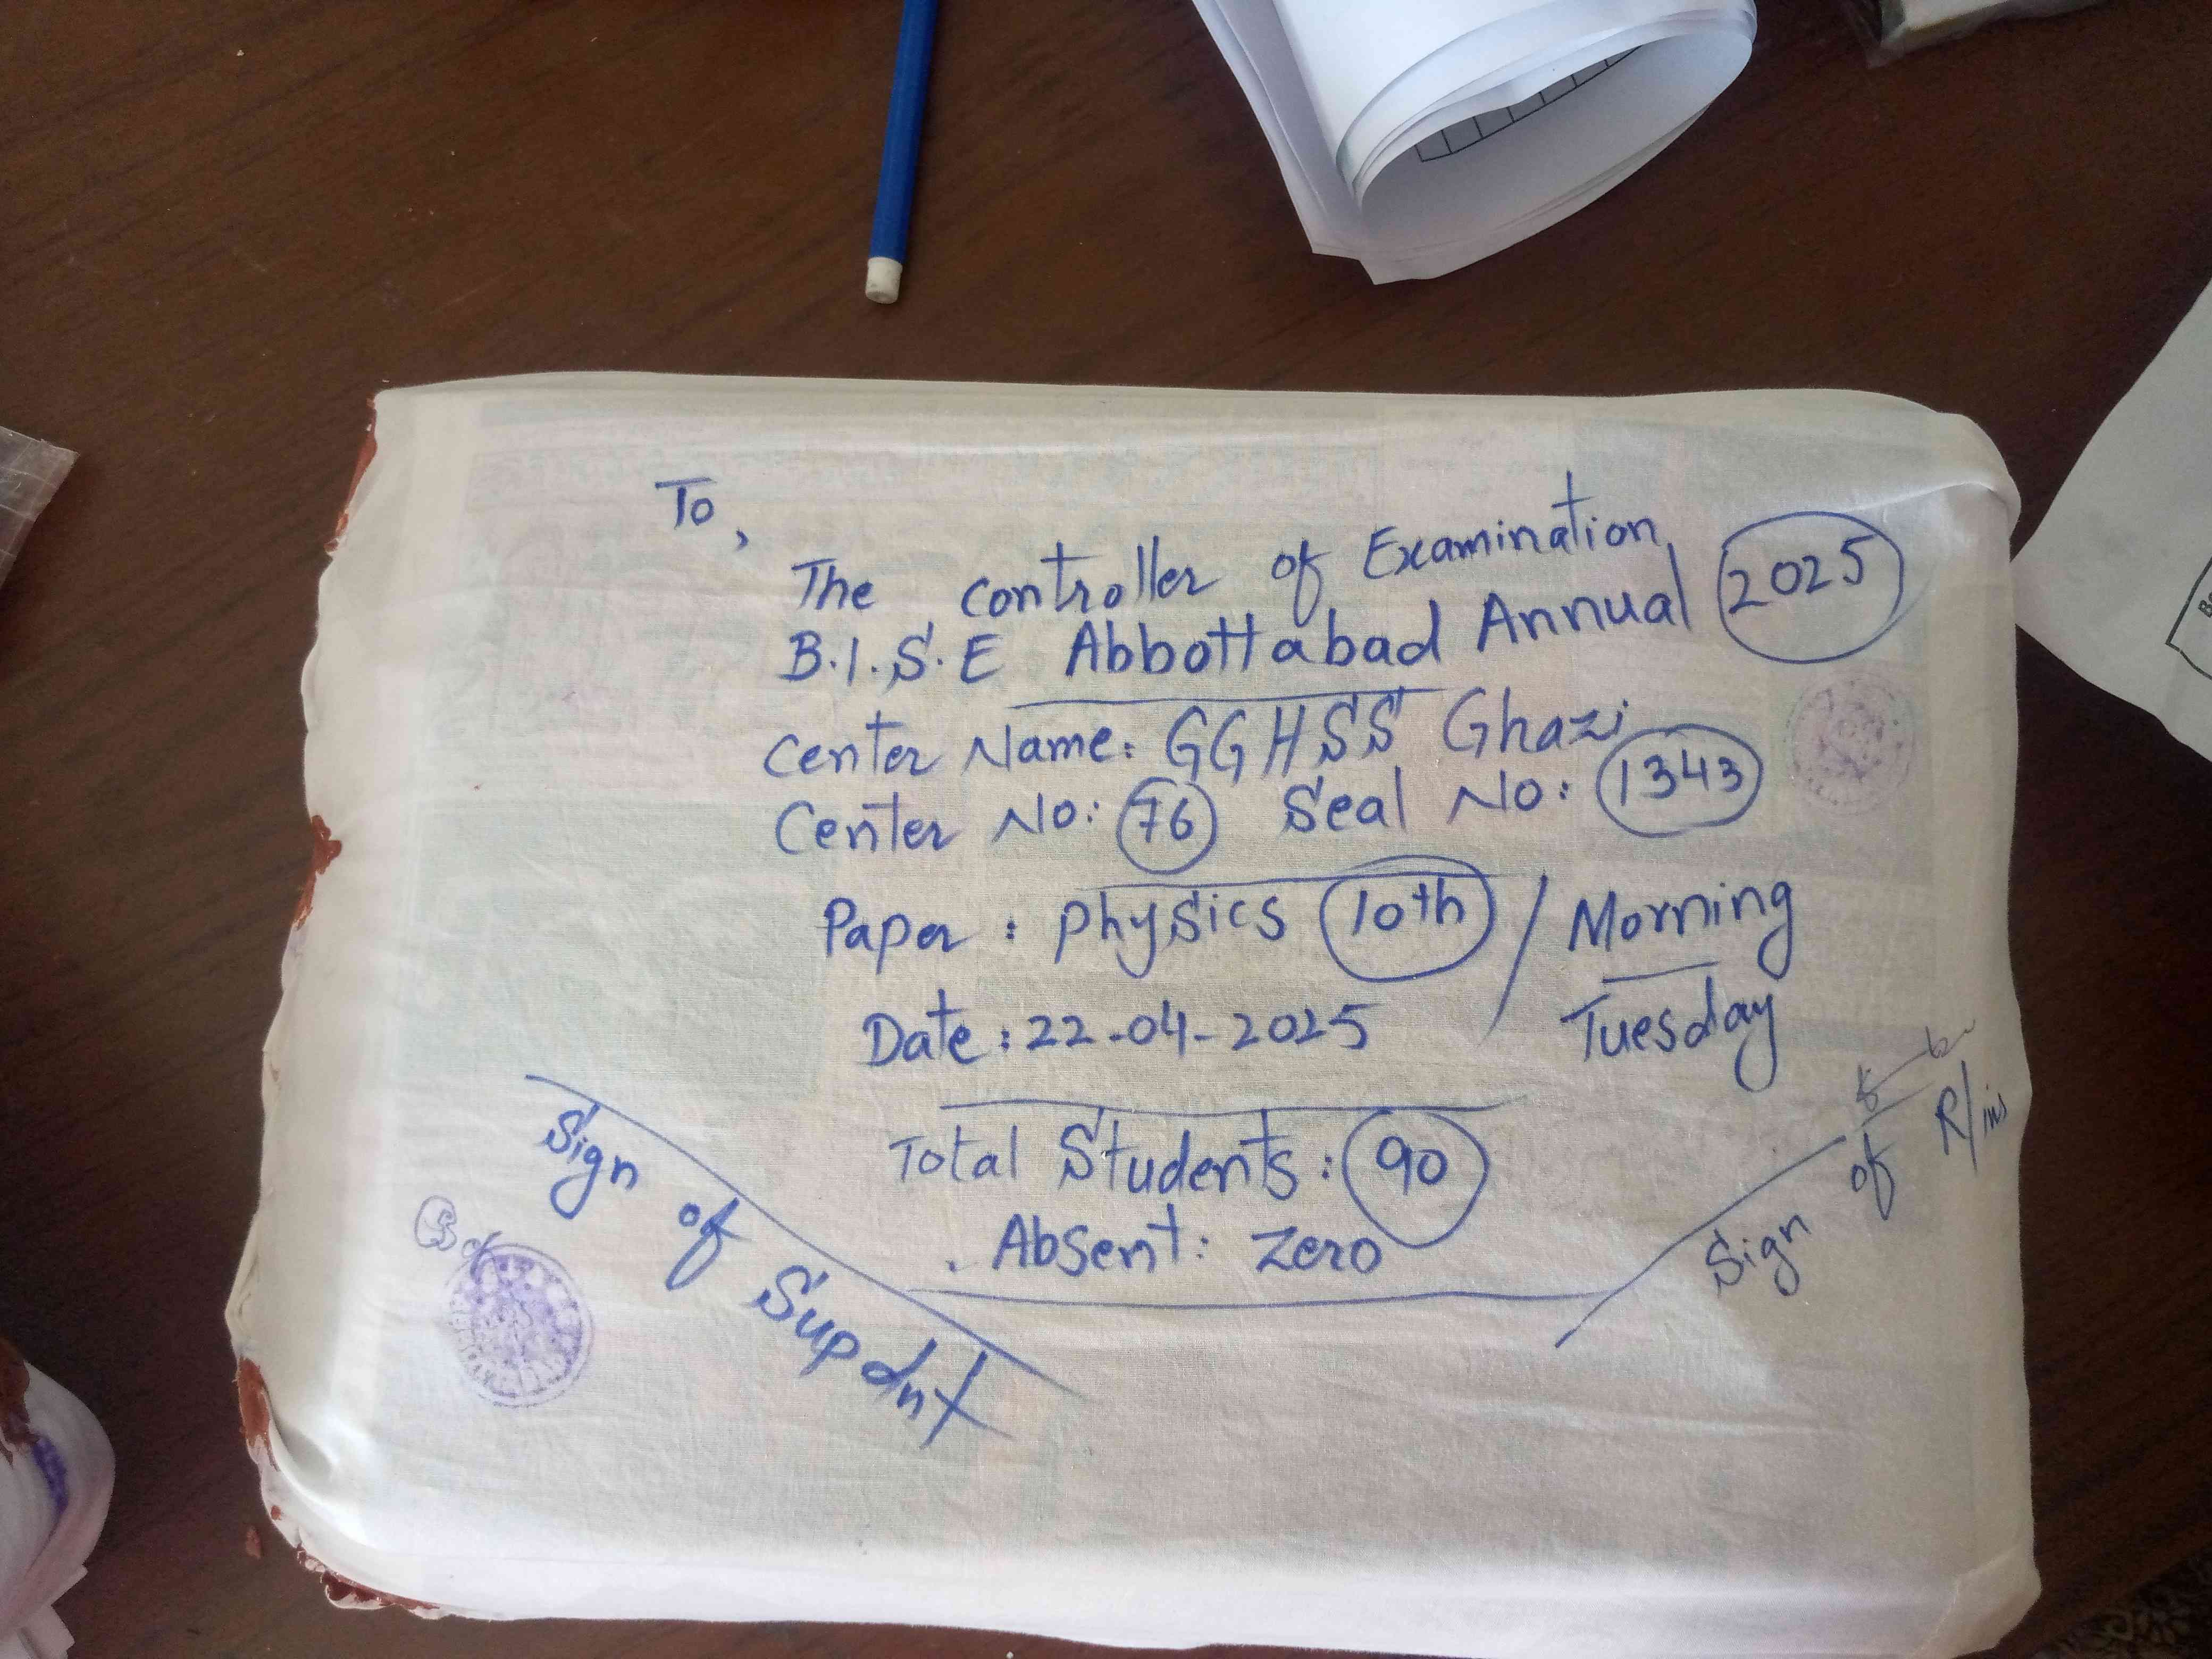 To,
The controller of Examination
B.I.S.E Abbottabad Annual 2025
Center Name: GGHSS Ghazi
Center No: 76 Seal No: 1343
Paper : physics 10th / Morning
Date : 22-04-2025 Tuesday
Total Students : 90
Absent: Zero
Sign of Supdnt
Sign of R/ins